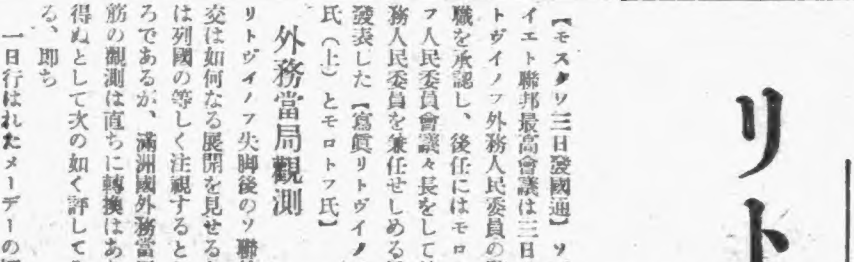 リト
【モスクワ三日發國通】ソ
イエト聯邦最高會議は三日
トヴイノフ外務人民委員の
職を承認し、後任にはモロ
フ人民委員會議々長をして
務人民委員を兼任せしめる
發表した【寫眞リトヴイノ
氏（上）とモロトフ氏】
外務當局觀測
リトヴイノフ失脚後のソ聯
交は如何なる展開を見せる
は列國の等しく注視すると
ろであるが、滿洲國外務當
筋の觀測は直ちに轉換はあ
得ぬとして次の如く評して
る、即ち
一日行はれたメーデーの